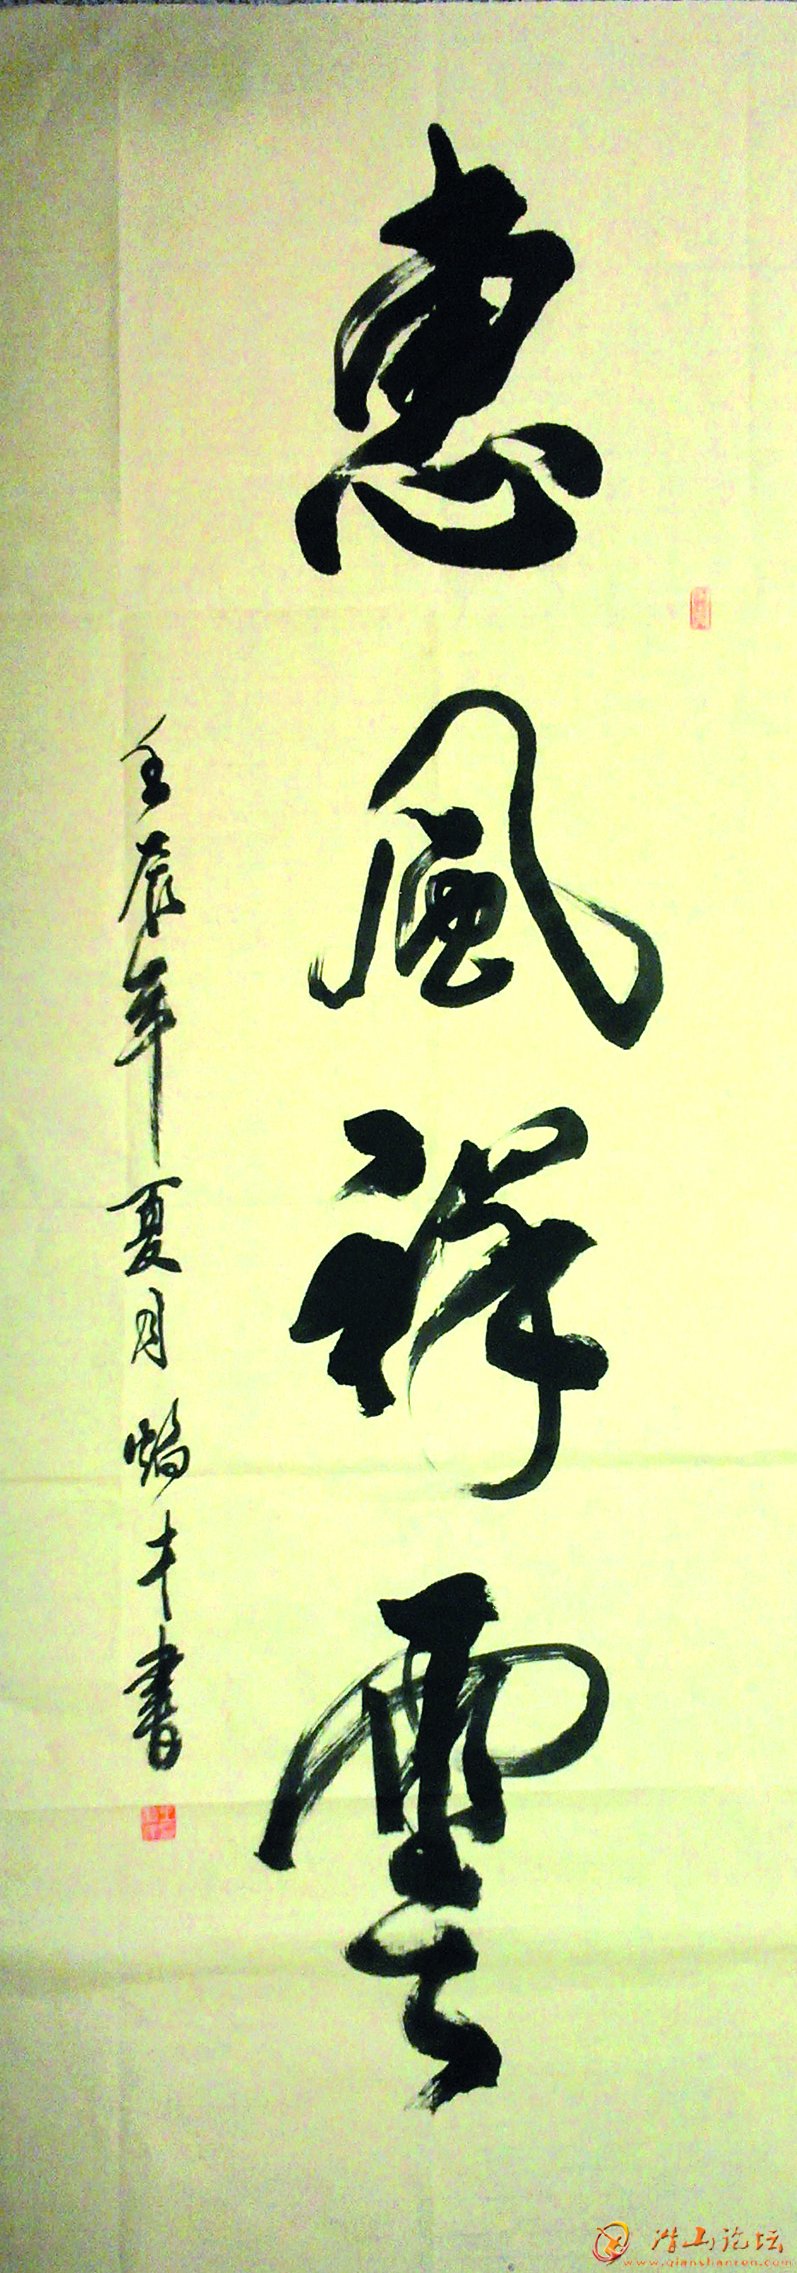 惠風祥雲
壬辰年夏月 書
潜山论坛
www.qianshanren.com